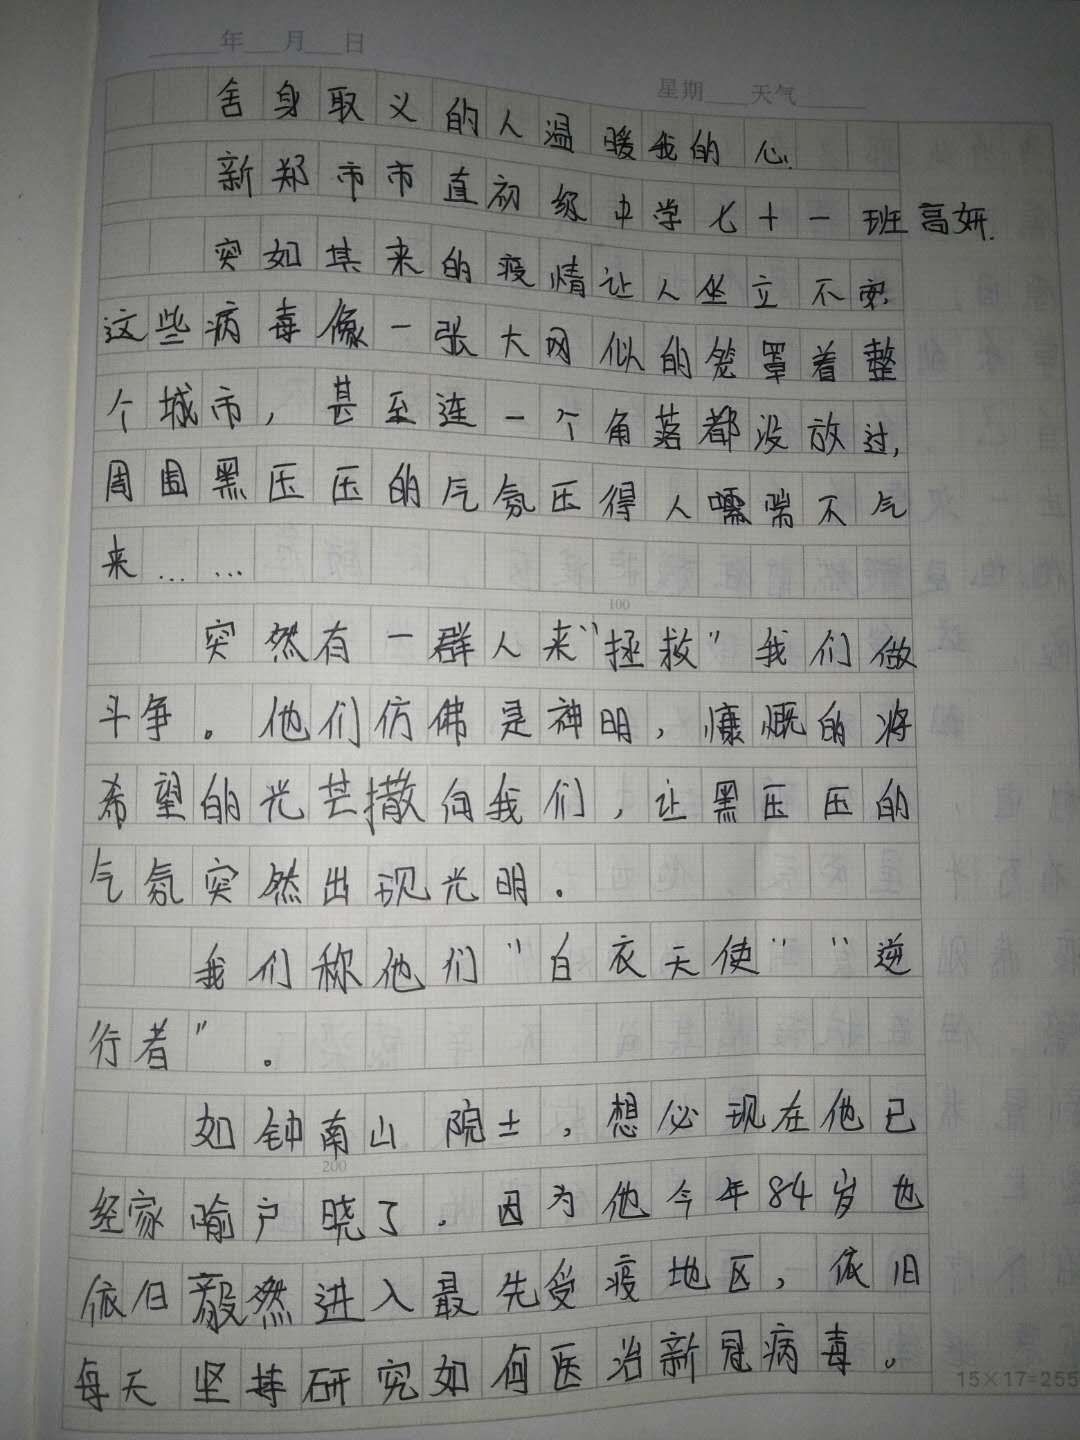 年 月 日
星期 天气
舍身取义的人温暖我的心.
新郑市市直初级中学七十一班高妍.
突如其来的疫情让人坐立不安.
这些病毒像一张大网似的笼罩着整
个城市，甚至连一个角落都没放过,
周围黑压压的气氛压得人喘不气
来……
100
突然有一群人来“拯救”我们做
斗争。他们仿佛是神明，慷慨的将
希望的光芒撒向我们，让黑压压的
气氛突然出现光明.
我们称他们“白衣天使““逆
行者”.
如钟南山院士，想必现在他已
200
经家喻户晓了.因为他今年84岁也
依旧毅然进入最先受疫地区，依旧
每天坚持研究如何医治新冠病毒。
15×17=255